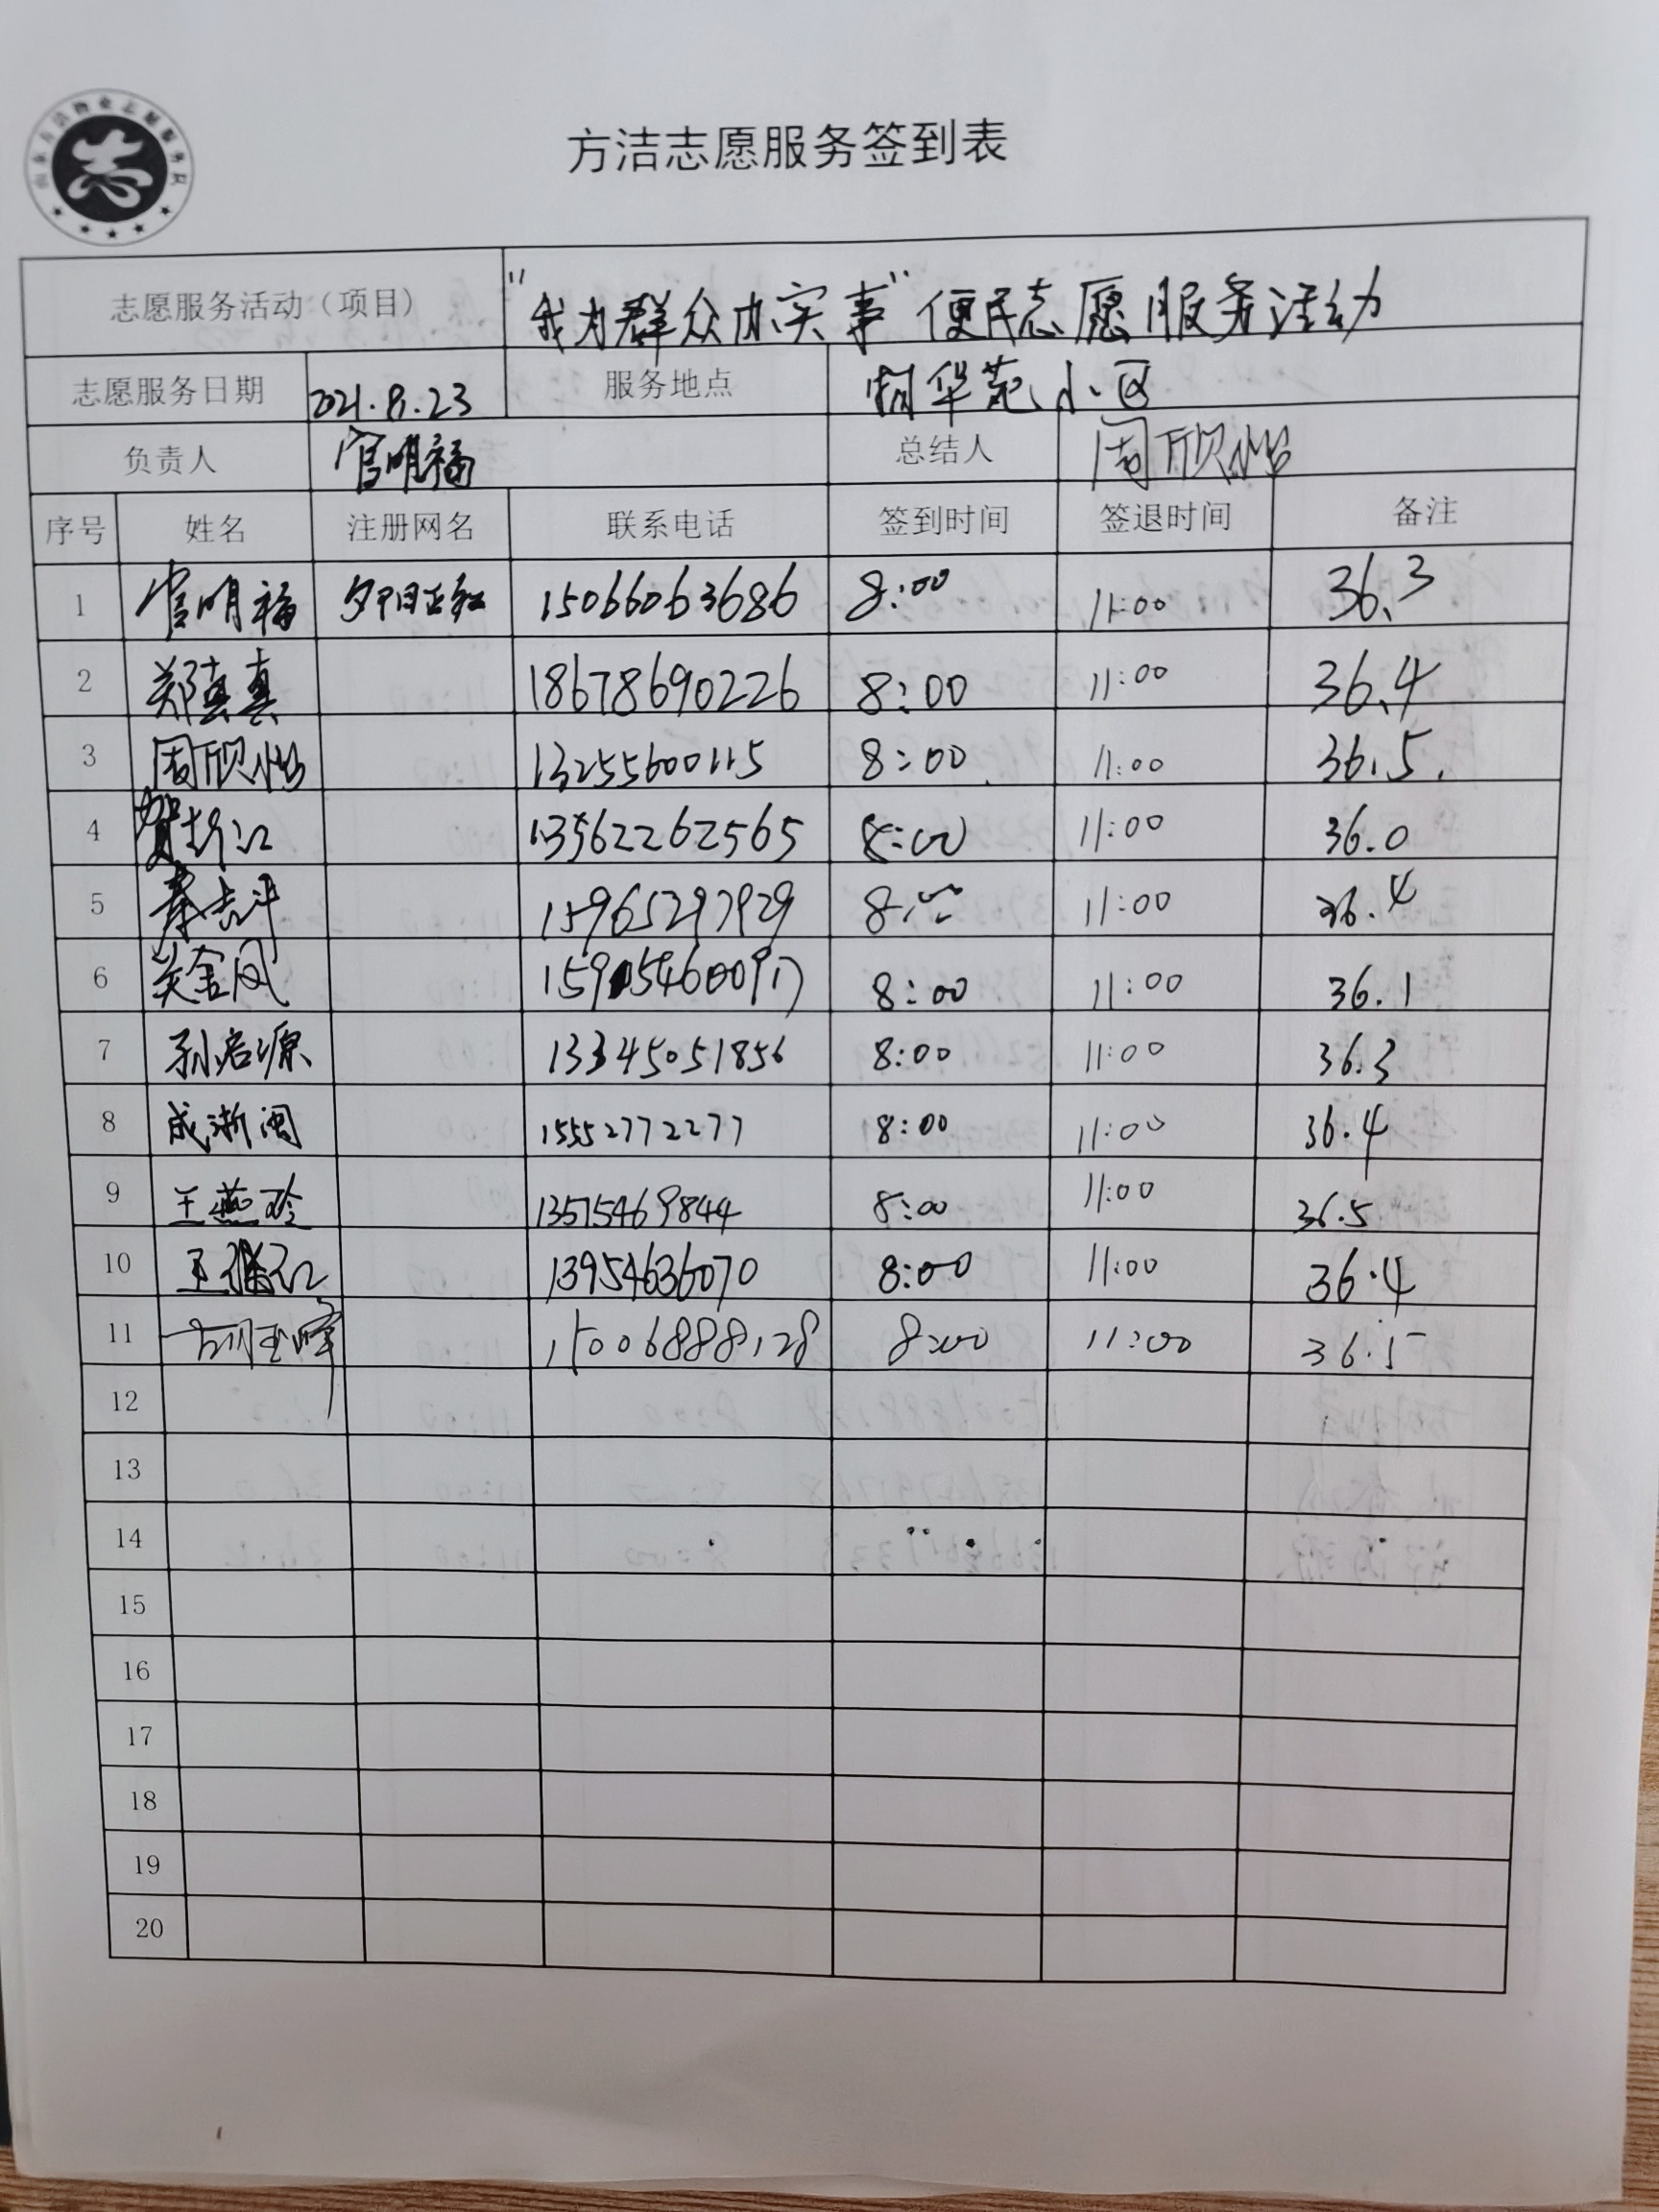 方洁志愿服务签到表
志愿服务活动（项目） "我为群众办实事"便民志愿服务活动
志愿服务日期 2021.8.23 服务地点 华苑小区
负责人 官明福 总结人 周欣怡
序号 姓名 注册网名 联系电话 签到时间 签退时间 备注
1 官明福 夕阳正红 15066063686 8:00 11:00 36.3
2 郑真真 18678690226 8:00 11:00 36.4
3 周欣怡 13255600115 8:00 11:00 36.5
4 13562262565 8:00 11:00 36.0
5 15965297929 8:00 11:00 36.4
6 关金凤 8:00 11:00 36.1
7 孙启源 13345051856 8:00 11:00 36.3
8 成浙闽 15552772277 8:00 11:00 36.4
9 王燕玲 13575469844 8:00 11:00 36.5
10 王 13954636070 8:00 11:00 36.4
11 胡玉峰 15006888128 8:00 11:00 36.5
12
13
14
15
16
17
18
19
20